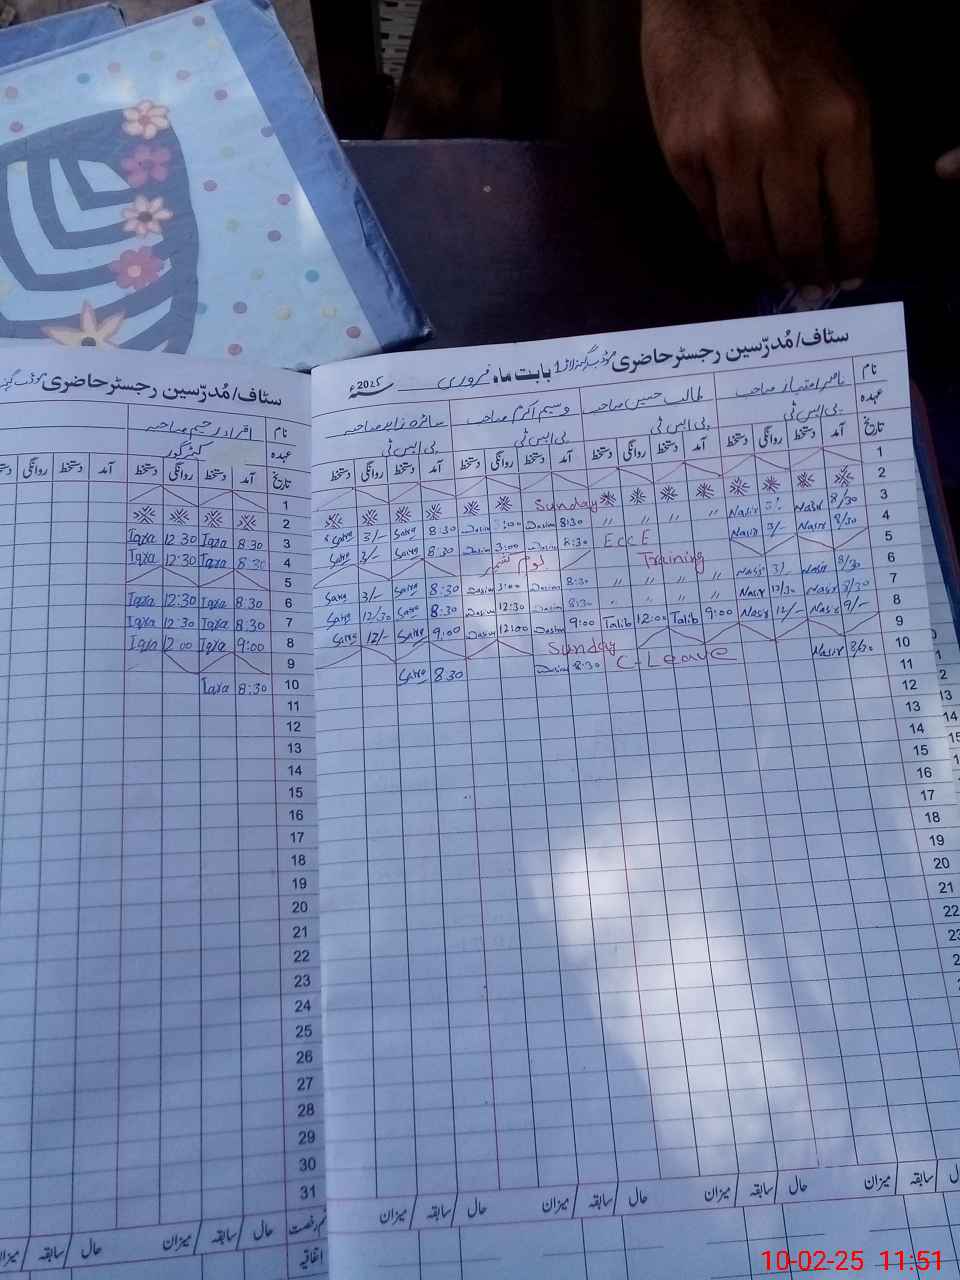 سٹاف/مُدرّسین رجسٹر حاضری بابت ماہ فروری 2025ء
نام ناصر امتیاز صاحب طالب حسین صاحب وسیم اکرم صاحب سائرہ صاحبہ
عہدہ پی ایس ٹی پی ایس ٹی پی ایس ٹی پی ایس ٹی
تاریخ آمد دستخط روانگی دستخط آمد دستخط روانگی دستخط آمد دستخط روانگی دستخط
1
2 Sunday
3 8/30 Nasir Nasir " " " " 8:30 Wasim Wasim 8:30 Saira 3/- Saira
4 8/30 Nasir 3/- Nasir EccE 8:30 Wasim 3:00 Wasim 8:30 Saira 3/- Saira
5 Training یوم کشمیر
6 8/30 Nasir 3/- Nasir " " " " 8:30 Wasim 3:00 Wasim 8:30 Saira 3/- Saira
7 8/30 Nasir 12/30 Nasir " " " " 8:30 Wasim 12:30 Wasim 8:30 Saira 12/30 Saira
8 9/- Nasir 12/- Nasir 9:00 Talib 12:00 Talib 9:00 Wasim 12:00 Wasim 9:00 Saira 12/- Saira
9 Sunday
10 8/30 Nasir C-Leave 8:30 Wasim 8:30 Saira
11
12
13
14
15
16
17
18
19
20
21
22
23
حال سابقہ میزان حال سابقہ میزان حال سابقہ میزان
سٹاف/مُدرّسین رجسٹر حاضری
نام اقراء رحیم صاحبہ
عہدہ کیئر گور
تاریخ آمد دستخط روانگی دستخط آمد دستخط روانگی
1
2
3 8:30 Iqra 12:30 Iqra
4 8:30 Iqra 12:30 Iqra
5
6 8:30 Iqra 12:30 Iqra
7 8:30 Iqra 12:30 Iqra
8 9:00 Iqra 12:00 Iqra
9
10 8:30 Iqra
11
12
13
14
15
16
17
18
19
20
21
22
23
24
25
26
27
28
29
30
31
حال سابقہ میزان
اتفاقیہ حال سابقہ میزان
10-02-25 11:51